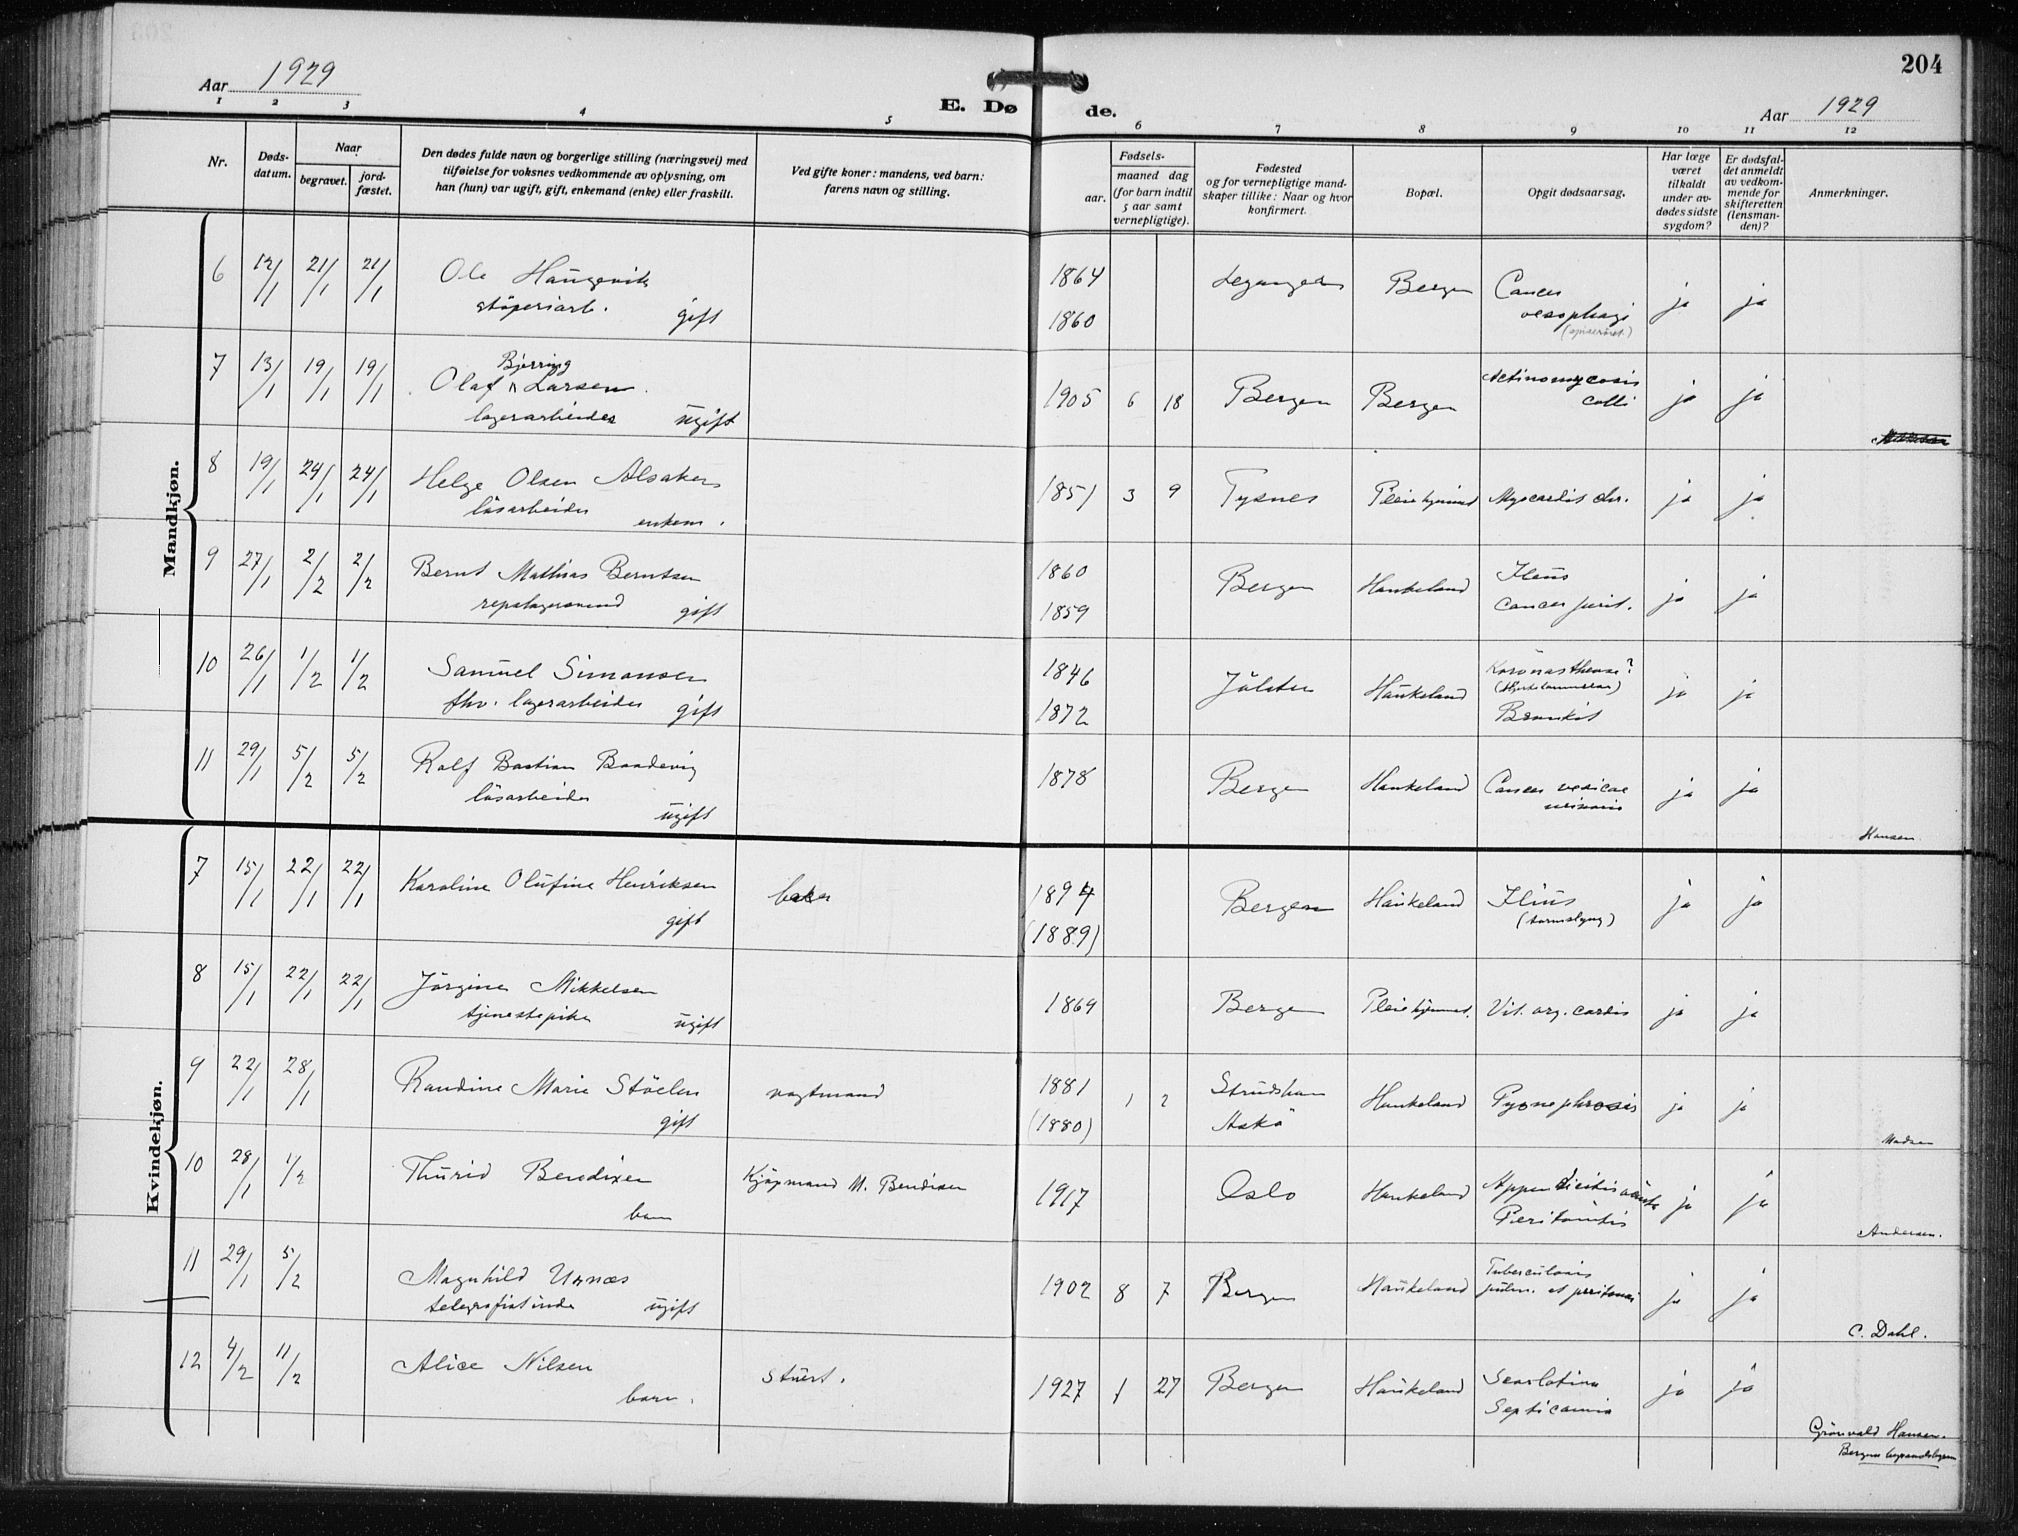 204
Aar 1929
E. Dø de.
Aar 1929
1 2 3 4 5 6 7 8 9 10 11 12
Nr.
Døds-
datum.
Naar
begravet.
jord-
fæstet.
Den dødes fulde navn og borgerlige stilling (næringsvei) med
tilføielse for voksnes vedkommende av oplysning, om
han (hun) var ugift, gift, enkemand (enke) eller fraskilt.
Ved gifte koner: mandens, ved barn:
farens navn og stilling.
Fødsels-
aar.
maaned dag
(for barn indtil
5 aar samt
vernepligtige).
Fødested
og for vernepligtige mand-
skaper tillike: Naar og hvor
konfirmert.
Bopæl.
Opgit dødsaarsag.
Har læge
været
tilkaldt
under av-
dødes sidste
sygdom?
Er dødsfal-
det anmeldt
av vedkom-
mende for
skifteretten
(lensman-
den)?
Anmerkninger.
Mandkjøn.
6 12/1 21/1 21/1 Ole Haugevik 1864 Leganger Bergen Cancer ja ja
støperiarb. gift 1860 oesophagi
(spiserøret)
7 13/1 19/1 19/1 Bjørring
Olaf Larsen 1905 6 18 Bergen Bergen Actinomycosis ja ja
lagerarbeider ugift colli
8 19/1 24/1 24/1 Helge Olsen Alsaker 1851 3 9 Tysnes Pleiehjemmet Myocardit chr. ja ja
løsarbeider enkem.
9 27/1 2/2 2/2 Bernt Mathias Berntsen 1860 Bergen Haukeland Ileus ja ja
repslagersvend gift 1859 Cancer perit.
10 26/1 1/2 1/2 Samuel Simonsen 1846 Jølster Haukeland ja ja
fhv. lagerarbeider gift 1872 Bronkit
11 29/1 5/2 5/2 Rolf Bastian Baadevig 1878 Bergen Haukeland Cancer vesicae ja ja
løsarbeider ugift urinaria
Hansen.
Kvindekjøn.
7 15/1 22/1 22/1 Karoline Olufine Henriksen baker 1894 Bergen Haukeland Ileus ja ja
gift (1889) (tarmslyng)
8 15/1 22/1 22/1 Jørgine Mikkelsen 1869 Bergen Pleiehjemmet. Vit. org. cordis ja ja
tjenestepike ugift
9 22/1 28/1 Randine Marie Støelen vagtmand 1881 1 2 Strudshavn Haukeland Pyonephrosis ja ja
gift (1880) Askø
Madsen
10 28/1 1/2 Thurid Bendixen Kjøpmand M. Bendixen 1917 Oslo Haukeland Appendicitis acuta ja ja
barn Peritonitis
Andersen.
11 29/1 5/2 Magnhild Urnæs 1902 8 7 Bergen Haukeland Tuberculosis ja ja
telegrafistinde ugift pulm. et peritonei
C. Dahl.
12 4/2 11/2 Alice Nilsen stuert. 1927 1 27 Bergen Haukeland Scarlatina ja ja
barn. Septicæmia
Grønvald Hansen.